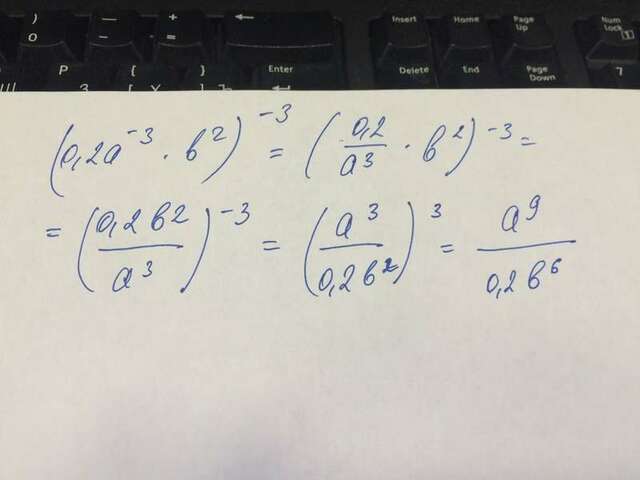 ) — + ← Insert Home Page Up Num Lock
0 - = Delete End Page Down 7
P { } Enter
[ ]
(0,2a⁻³ · b²)⁻³ = (0,2/a³ · b²)⁻³ =
= (0,2b²/a³)⁻³ = (a³/0,2b²)³ = a⁹/0,2b⁶